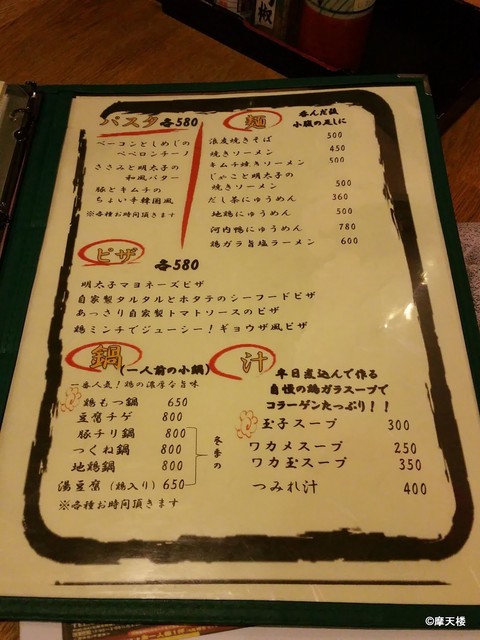 椒
パスタ各580
ベーコンとしめじの
ペペロンチーノ
ささみと明太子の
和風バター
豚とキムチの
ちょい辛韓国風
※各種お時間頂きます
麺
呑んだ後
小腹の足しに
浪花焼きそば 500
焼きソーメン 450
キムチ焼きソーメン 500
じゃこと明太子の
焼きソーメン 500
だし茶にゅうめん 360
地鶏にゅうめん 500
河内鴨にゅうめん 780
鶏ガラ旨塩ラーメン 600
ピザ
各580
明太子マヨネーズピザ
自家製タルタルとホタテのシーフードピザ
あっさり自家製トマトソースのピザ
鶏ミンチでジューシー!ギョウザ風ピザ
鍋(一人前の小鍋)
一番人気!鶏の濃厚な旨味
鶏もつ鍋 650
豆腐チゲ 800
豚チリ鍋 800
つくね鍋 800
地鶏鍋 800
湯豆腐(鶏入り)650
冬季の
※各種お時間頂きます
汁
半日煮込んで作る
自慢の鶏ガラスープで
コラーゲンたっぷり!!
玉子スープ 300
ワカメスープ 250
ワカ玉スープ 350
つみれ汁 400
©摩天楼